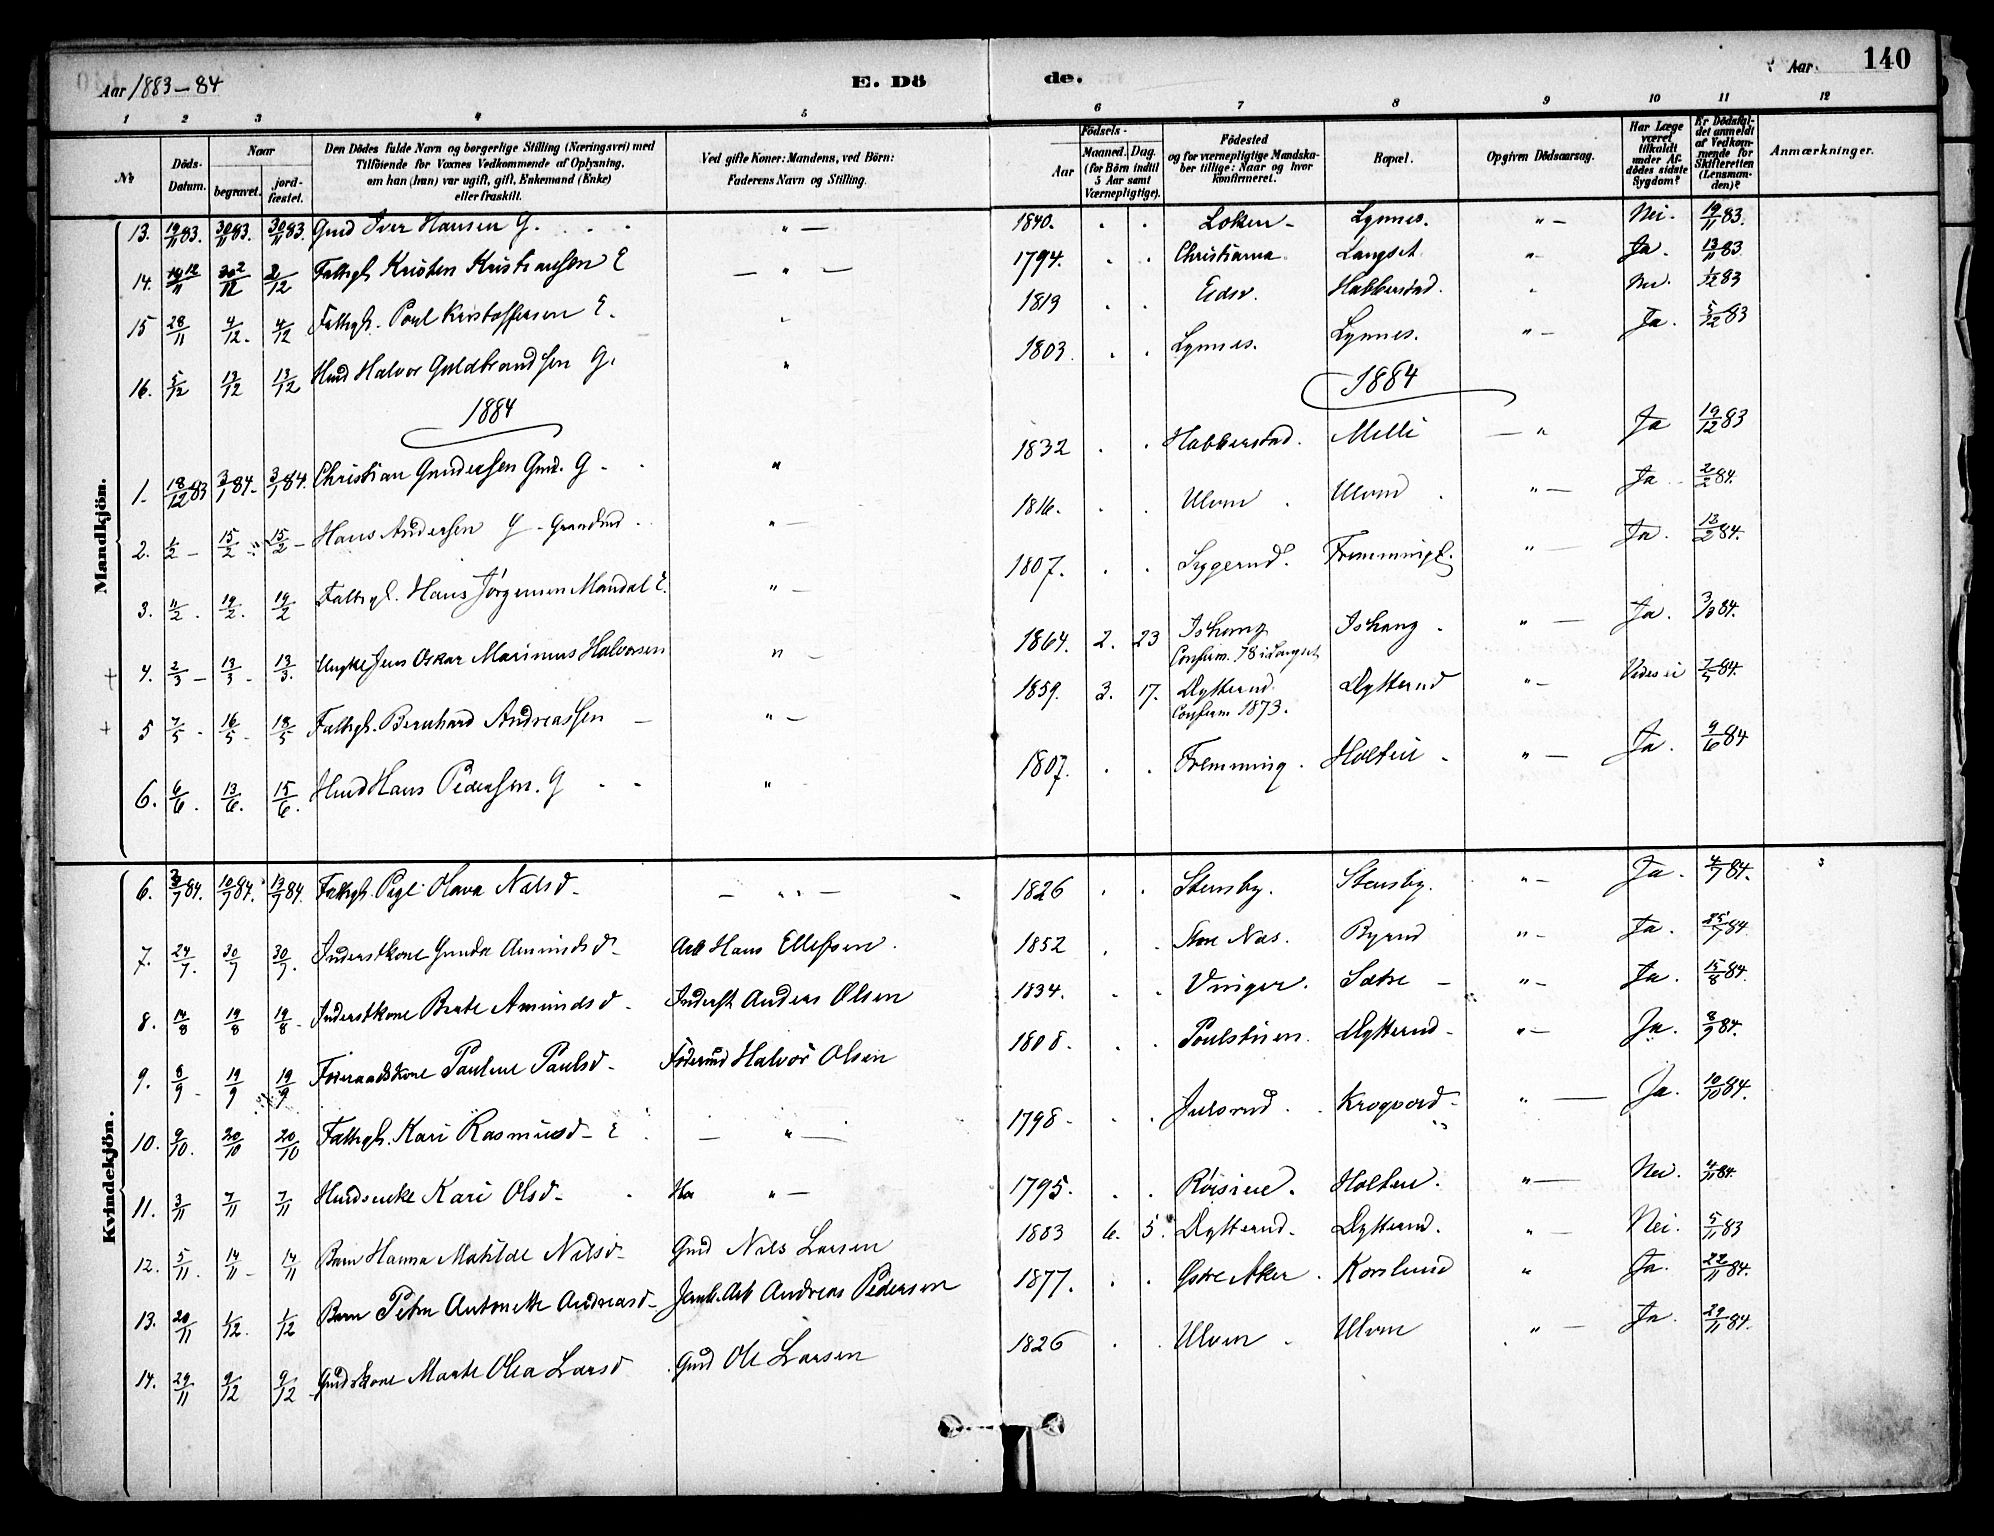 Aar 1883-84
E. Dö
de.
Aar
140
1 2 3 4 5 6 7 8 9 10 11 12
№
Döds-Datum.
Naar
begravet.
jord-fæstet.
Den Dödes fulde Navn og borgerlige Stilling (Næringsvei) med
Tilföiende for Voxnes Vedkommende af Oplysning,
om han (hun) var ugift, gift, Enkemand (Enke)
eller fraskilt.
Ved gifte Koner: Mandens, ved Börn:
Faderens Navn og Stilling.
Födsels-
Aar
Maaned. Dag.
(for Börn indtil
5 Aar samt
Værnepligtige).
Födested
og for værnepligtige Mandska-
ber tillige: Naar og hvor
konfirmeret.
Bopæl.
Opgiven Dödsaarsag.
Har Læge
været
tilkaldt
under Af-
dödes sidste
Sygdom?
Er Dödsfal-
det anmeldt
af Vedkom-
mende for
Skifteretten
(Lensman-
den)?
Anmærkninger.
Mandkjön.
13. 19/11 83. 30/11 83. 30/11 83. Gmd Iver Hansen G. " 1840. Loken Lynnes. " Nei. 19/11 83.
14. 2/12 2/12 Fattigl. Kristen Kristiansen E " 1794. Christiania Langset " Ja. 13/11 83
15 28/11 4/12. 4/12 Fattigl. Poul Kristoffersen E. " 1819 Eidsv. Habberstad. " Nei. 1/12 83
16. 5/12 13/12 13/12 Hmd Halvor Guldbrandsen G. " 1803. Lynnes. Lynnes. " Ja. 5/12 83
1884
1884
1. 18/12 83 3/1 84. 3/1 84. Christian Gundersen Gmd. G " 1832 Habberstad. Melli " Ja 19/12 83
2. 1/2 15/2 15/2 Hans Andersen G " 1816. Ulvin Ulvin " Ja 2/2 84.
3. 11/2. 19/2. 19/2 Fattigl. Hans Jörgensen Mandal E. " 1807. Syggerud. " Ja. 13/2 84.
4. 2/3 13/3 13/3. Ungk Jens Oskar Marinius Halvorsen " 1864. 2. 23 Ishoug Confirm. 78 i Langset Ishoug " Ja. 3/3 84.
5 7/5 16/5 18/5 Fattigl. Bernhard Andreassen " 1859. 3. 17. Dytterud. Confirm 1873. Dytterud " Vides ei 7/5 84.
6. 6/6. 13/6. 15/6. Hmd Hans Pedersen. G " 1807. Fremming. Holten " Ja. 9/6 84
Kvindekjön.
6. 3/7 84. 10/7 84. 13/7 84. Fattigl. Pige Olava Nilsd. " 1826 Stensby. Stensby. " Ja. 4/7 84.
7. 24/7. 30/7 30/7. Inderstkone Gunda Amundsd. Arb Hans Ellefsen. 1852 Store Næs. Byrud " Ja. 25/7 84.
8. 14/8 19/8 19/8. Inderstkone Berte Amundsd. Inderst Anders Olsen 1834. Vinger. Sætre " Ja. 15/8 84.
9. 8/9 19/9 19/9 Föderaadskone Pauline Paulsd. Föderaad Halvor Olsen 1808. Poulstuen. Dytterud " Ja. 8/9 84.
10. 9/10. 20/10 20/10 Fattigl. Kari Rasmusd. E " 1798. Julsrud. Krogvold " Ja. 10/10 84.
11. 3/11 7/11 7/11 Husdsenke Kari Olsd. " 1795. Röisine. Holten. " Nei. 4/11 84.
12. 5/11. 14/11 14/11 Barn Hanna Matilde Nilsd. Gmd Nils Larsen 1883 6. 5. Dytterud. Dytterud. " Nei. 5/11 83
13. 20/11 1/12. 1/12 Barn Petra Antonette Andreasd. Jernb. Arb Andreas Pedersen 1877. Östre Aker. Korslund " Ja. 22/11 84.
14. 29/11 9/12 9/12 Gmdskone Marte Olea Larsd Gmd Ole Larsen 1826 Ulvin Ulvin " Ja. 29/11 84.